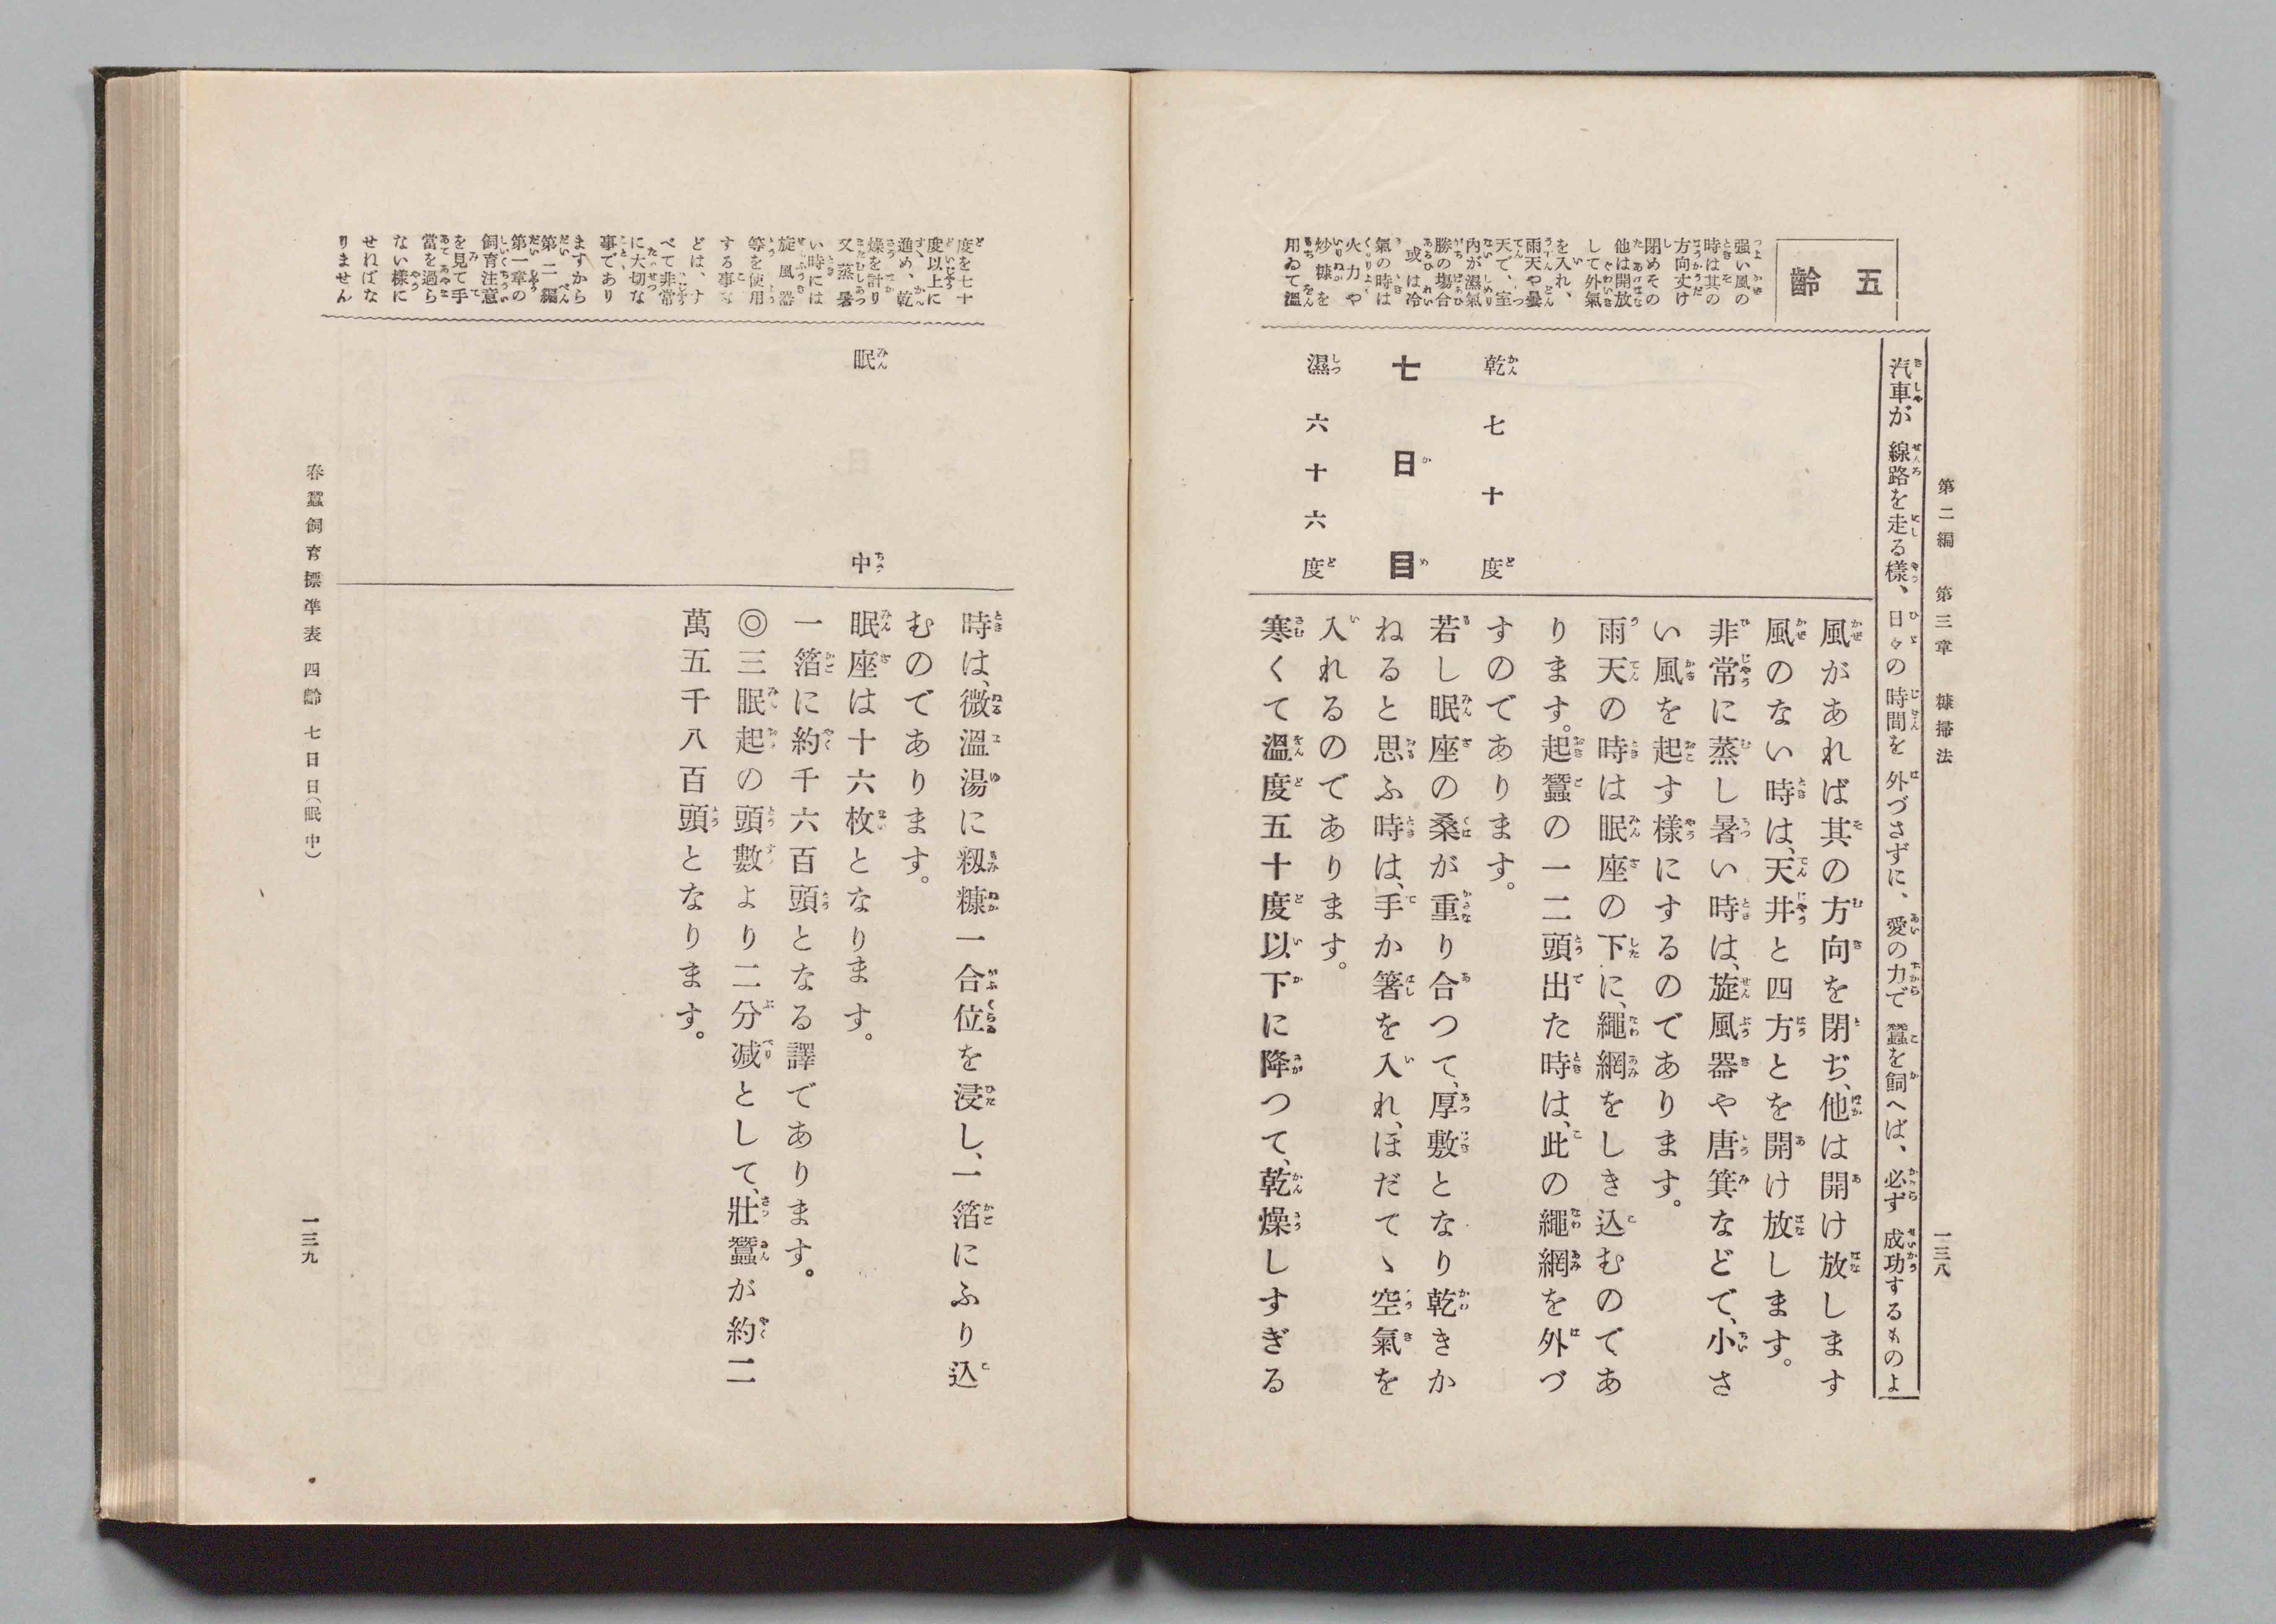 第二編　第三章　糠掃法
一三八
汽車が線路を走る樣、日々の時間を外づさずに、愛の力で蠶を飼へば、必ず成功するものよ
五齡
强い風の
時は其の
方向丈け
閉めその
他は開放
して外氣
を入れ、
雨天や曇
天で、室
內が濕氣
勝の塲合
或は冷
氣の時は
火力や
炒糠を
用ゐて溫
乾七十度
七日目
濕六十六度
風があれば其の方向を閉ぢ、他は開け放します
風のない時は、天井と四方とを開け放します。
非常に蒸し暑い時は、旋風器や唐箕などで、小さ
い風を起す樣にするのであります。
雨天の時は眠座の下に、繩網をしき込むのであ
ります。起蠶の一二頭出た時は、此の繩網を外づ
すのであります。
若し眠座の桑が重り合つて、厚敷となり乾きか
ねると思ふ時は、手か箸を入れ、ほだてゝ空氣を
入れるのであります。
寒くて溫度五十度以下に降つて、乾燥しすぎる
度を七十
度以上に
進め、乾
燥を計り
又蒸暑
い時には
旋風器
等を使用
する事な
どは、す
べて非常
に大切な
事であり
ますから
第二編
第一章の
飼育注意
を見て手
當を過ら
ない樣に
せればな
りません
眠中
時は、微溫湯に籾糠一合位を浸し、一箔にふり込
むのであります。
眠座は十六枚となります。
一箔に約千六百頭となる譯であります。
◎三眠起の頭數より二分減として、壯蠶が約二
萬五千八百頭となります。
春蠶飼育標準表　四齡　七日目（眠中）
一三九